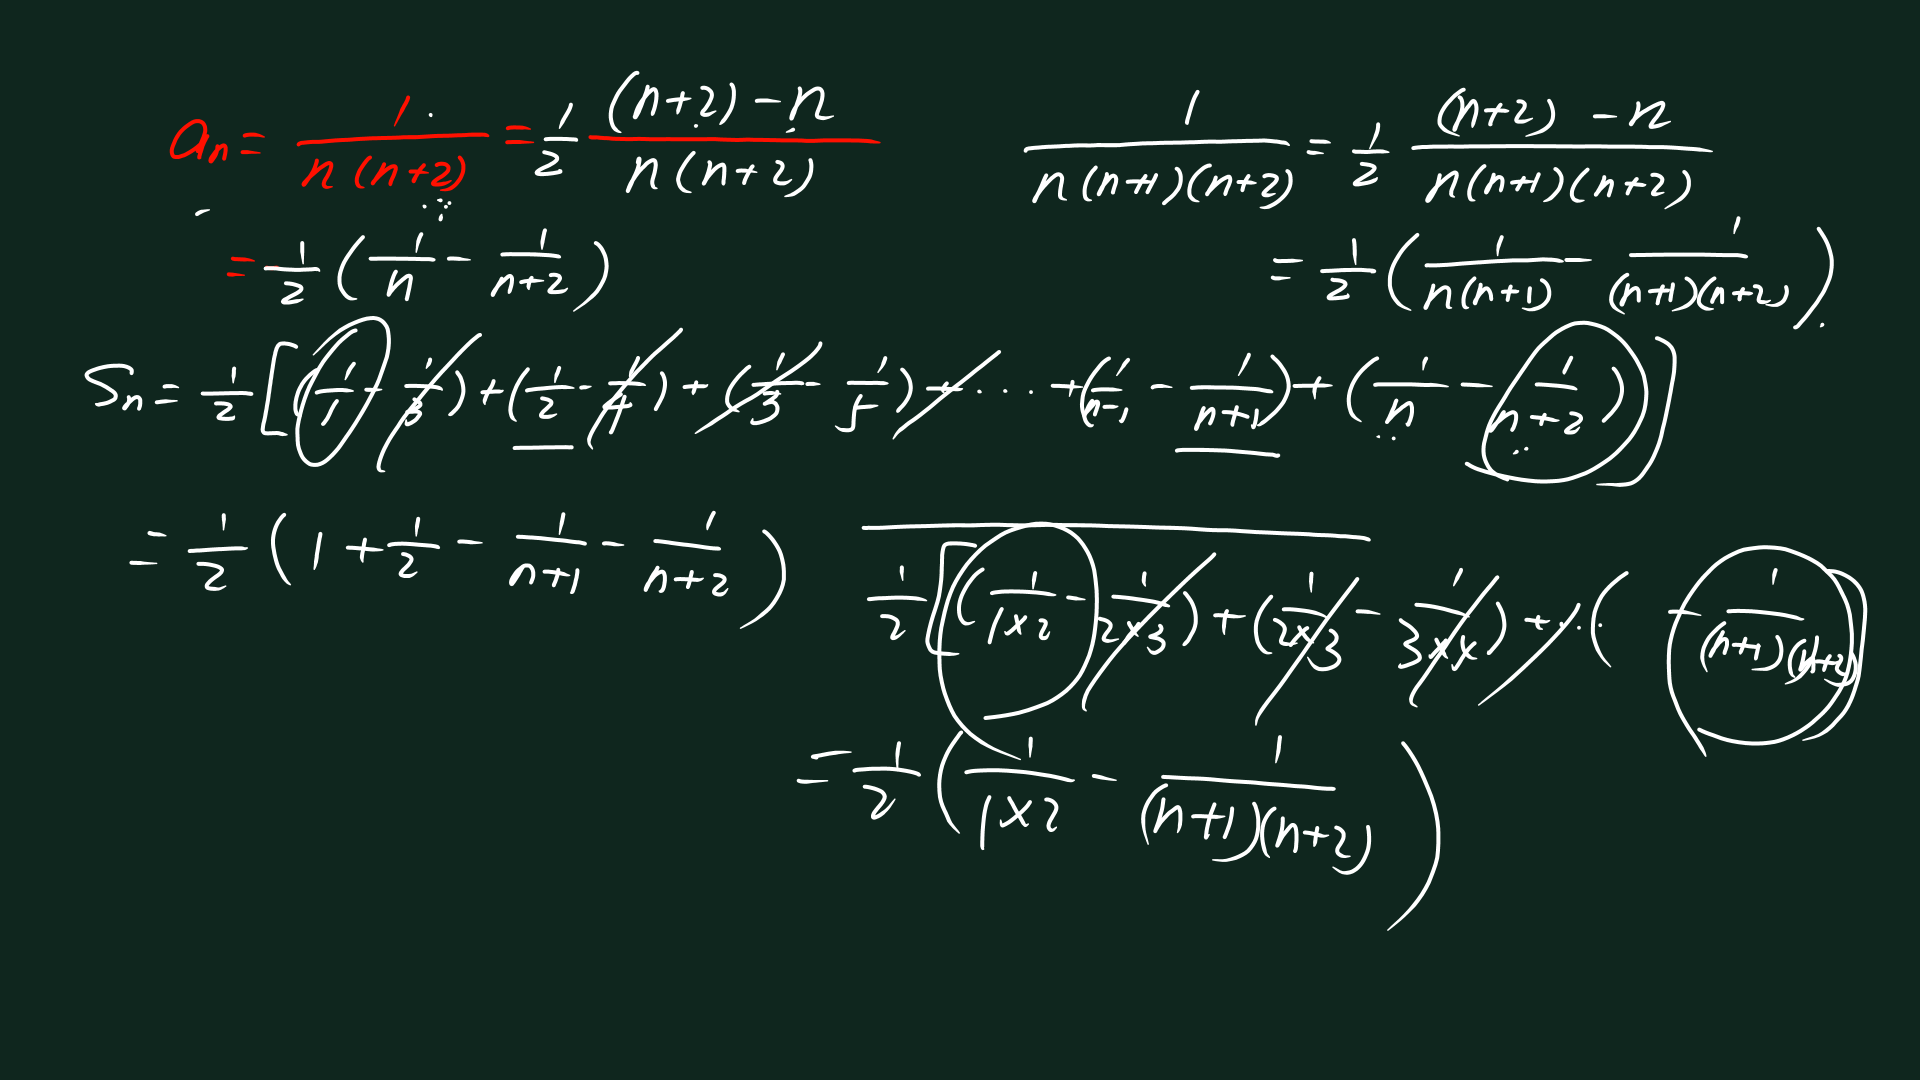 aₙ = 1/(n(n+2)) = 1/2 ((n+2)-n)/(n(n+2))
= 1/2 (1/n - 1/(n+2))
1/(n(n+1)(n+2)) = 1/2 ((n+2)-n)/(n(n+1)(n+2))
= 1/2 (1/(n(n+1)) - 1/((n+1)(n+2)))
Sₙ = 1/2 [(1/1 - 1/3) + (1/2 - 1/4) + (1/3 - 1/5) + ··· + (1/(n-1) - 1/(n+1)) + (1/n - 1/(n+2))]
= 1/2 (1 + 1/2 - 1/(n+1) - 1/(n+2))
1/2 [(1/(1×2) - 1/(2×3)) + (1/(2×3) - 1/(3×4)) + ··· ( - 1/((n+1)(n+2)))]
= 1/2 (1/(1×2) - 1/((n+1)(n+2)))